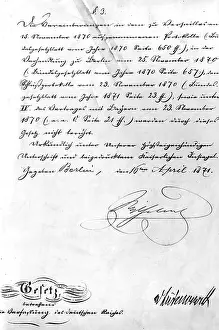 § 3.
Die Vereinbarungen in dem zu Versailles am
15. November 1870 aufgenommenen Protokolle (Bun-
desgesetzblatt vom Jahre 1870 Seite 650 ff.), in der
Verhandlung zu Berlin vom 25. November 1870
(Bundesgesetzblatt vom Jahre 1870 Seite 657), dem
Schlußprotokolle vom 23. November 1870 (Bundes-
gesetzblatt vom Jahre 1871 Seite 23 ff.), sowie unter
IV. des Vertrages mit Bayern vom 23. November
1870 (a. a. O. Seite 21 ff.) werden durch dieses
Gesetz nicht berührt.
Urkundlich unter Unserer Höchsteigenhändigen
Unterschrift und beigedrucktem Kaiserlichen Insiegel.
Gegeben Berlin, den 16ten April 1871.
Gesetz,
betreffend
die Verfassung des Deutschen Reichs.